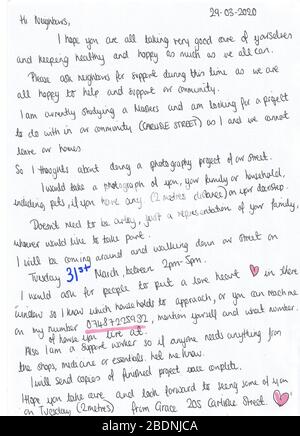 29-03-2020
Hi Neighbours,
I hope you are all taking very good care of yourselves
and keeping healthy and happy as much as we all can.
Please ask neighbours for support during this time as we
are all happy to help and support our community.
I am currently studying a Masters and am looking for a project
to do with in our community (CARLISLE STREET) as I and we cannot
leave our homes.
So I thought about doing a photography project of our street.
I would take a photograph of you, your family or household,
including pets, if you have any (2 metres distance) on your doorstep.
Doesn't need to be arty, just a representation of your family,
whoever would like to take part.
I will be coming around and walking down our street on
Tuesday 31st March, between 2pm-5pm.
I would ask for people to put a love heart ♡ in there
window so I know which households to approach, or you can reach me
on my number 07487225932, mention yourself and what number
of house you live at.
Also I am a support worker so if anyone needs anything from
the shops, medicine or essentials. let me know.
I will send copies of finished project once complete.
Hope you take care and look forward to seeing some of you
on Tuesday (2metres) from Grace 205 Carlisle Street. ♡
alamy
Image ID: 2BDNJCA
www.alamy.com